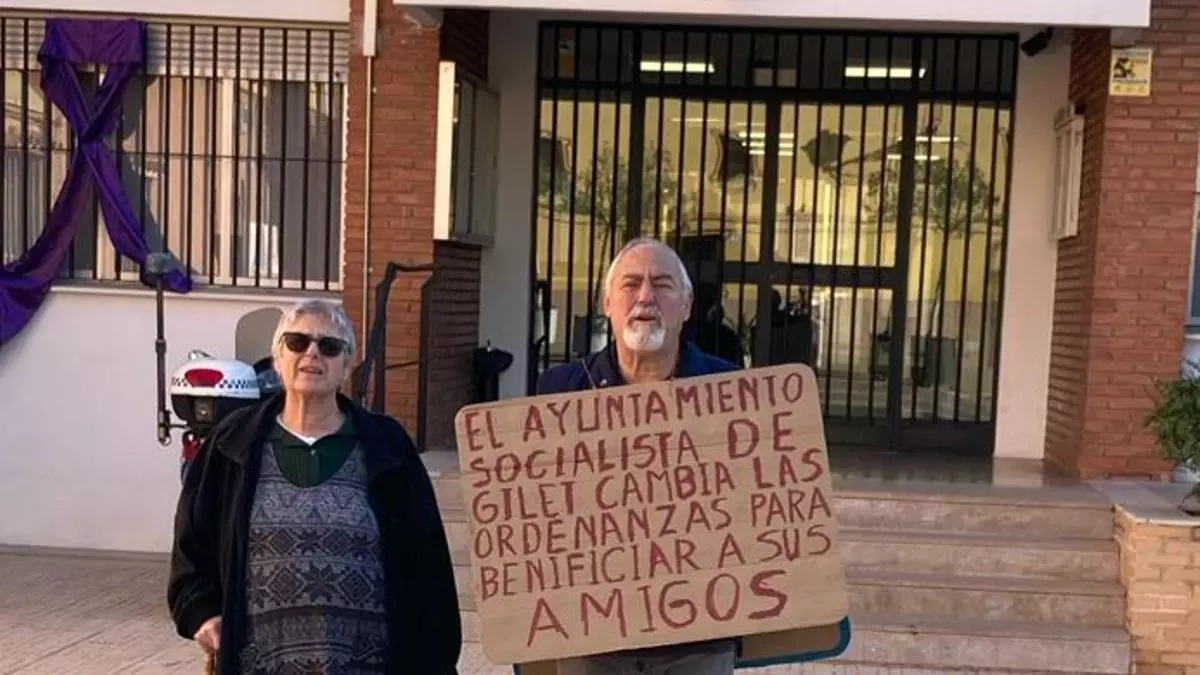 EL AYUNTAMIENTO
SOCIALISTA DE
GILET CAMBIA LAS
ORDENANZAS PARA
BENIFICIAR A SUS
AMIGOS